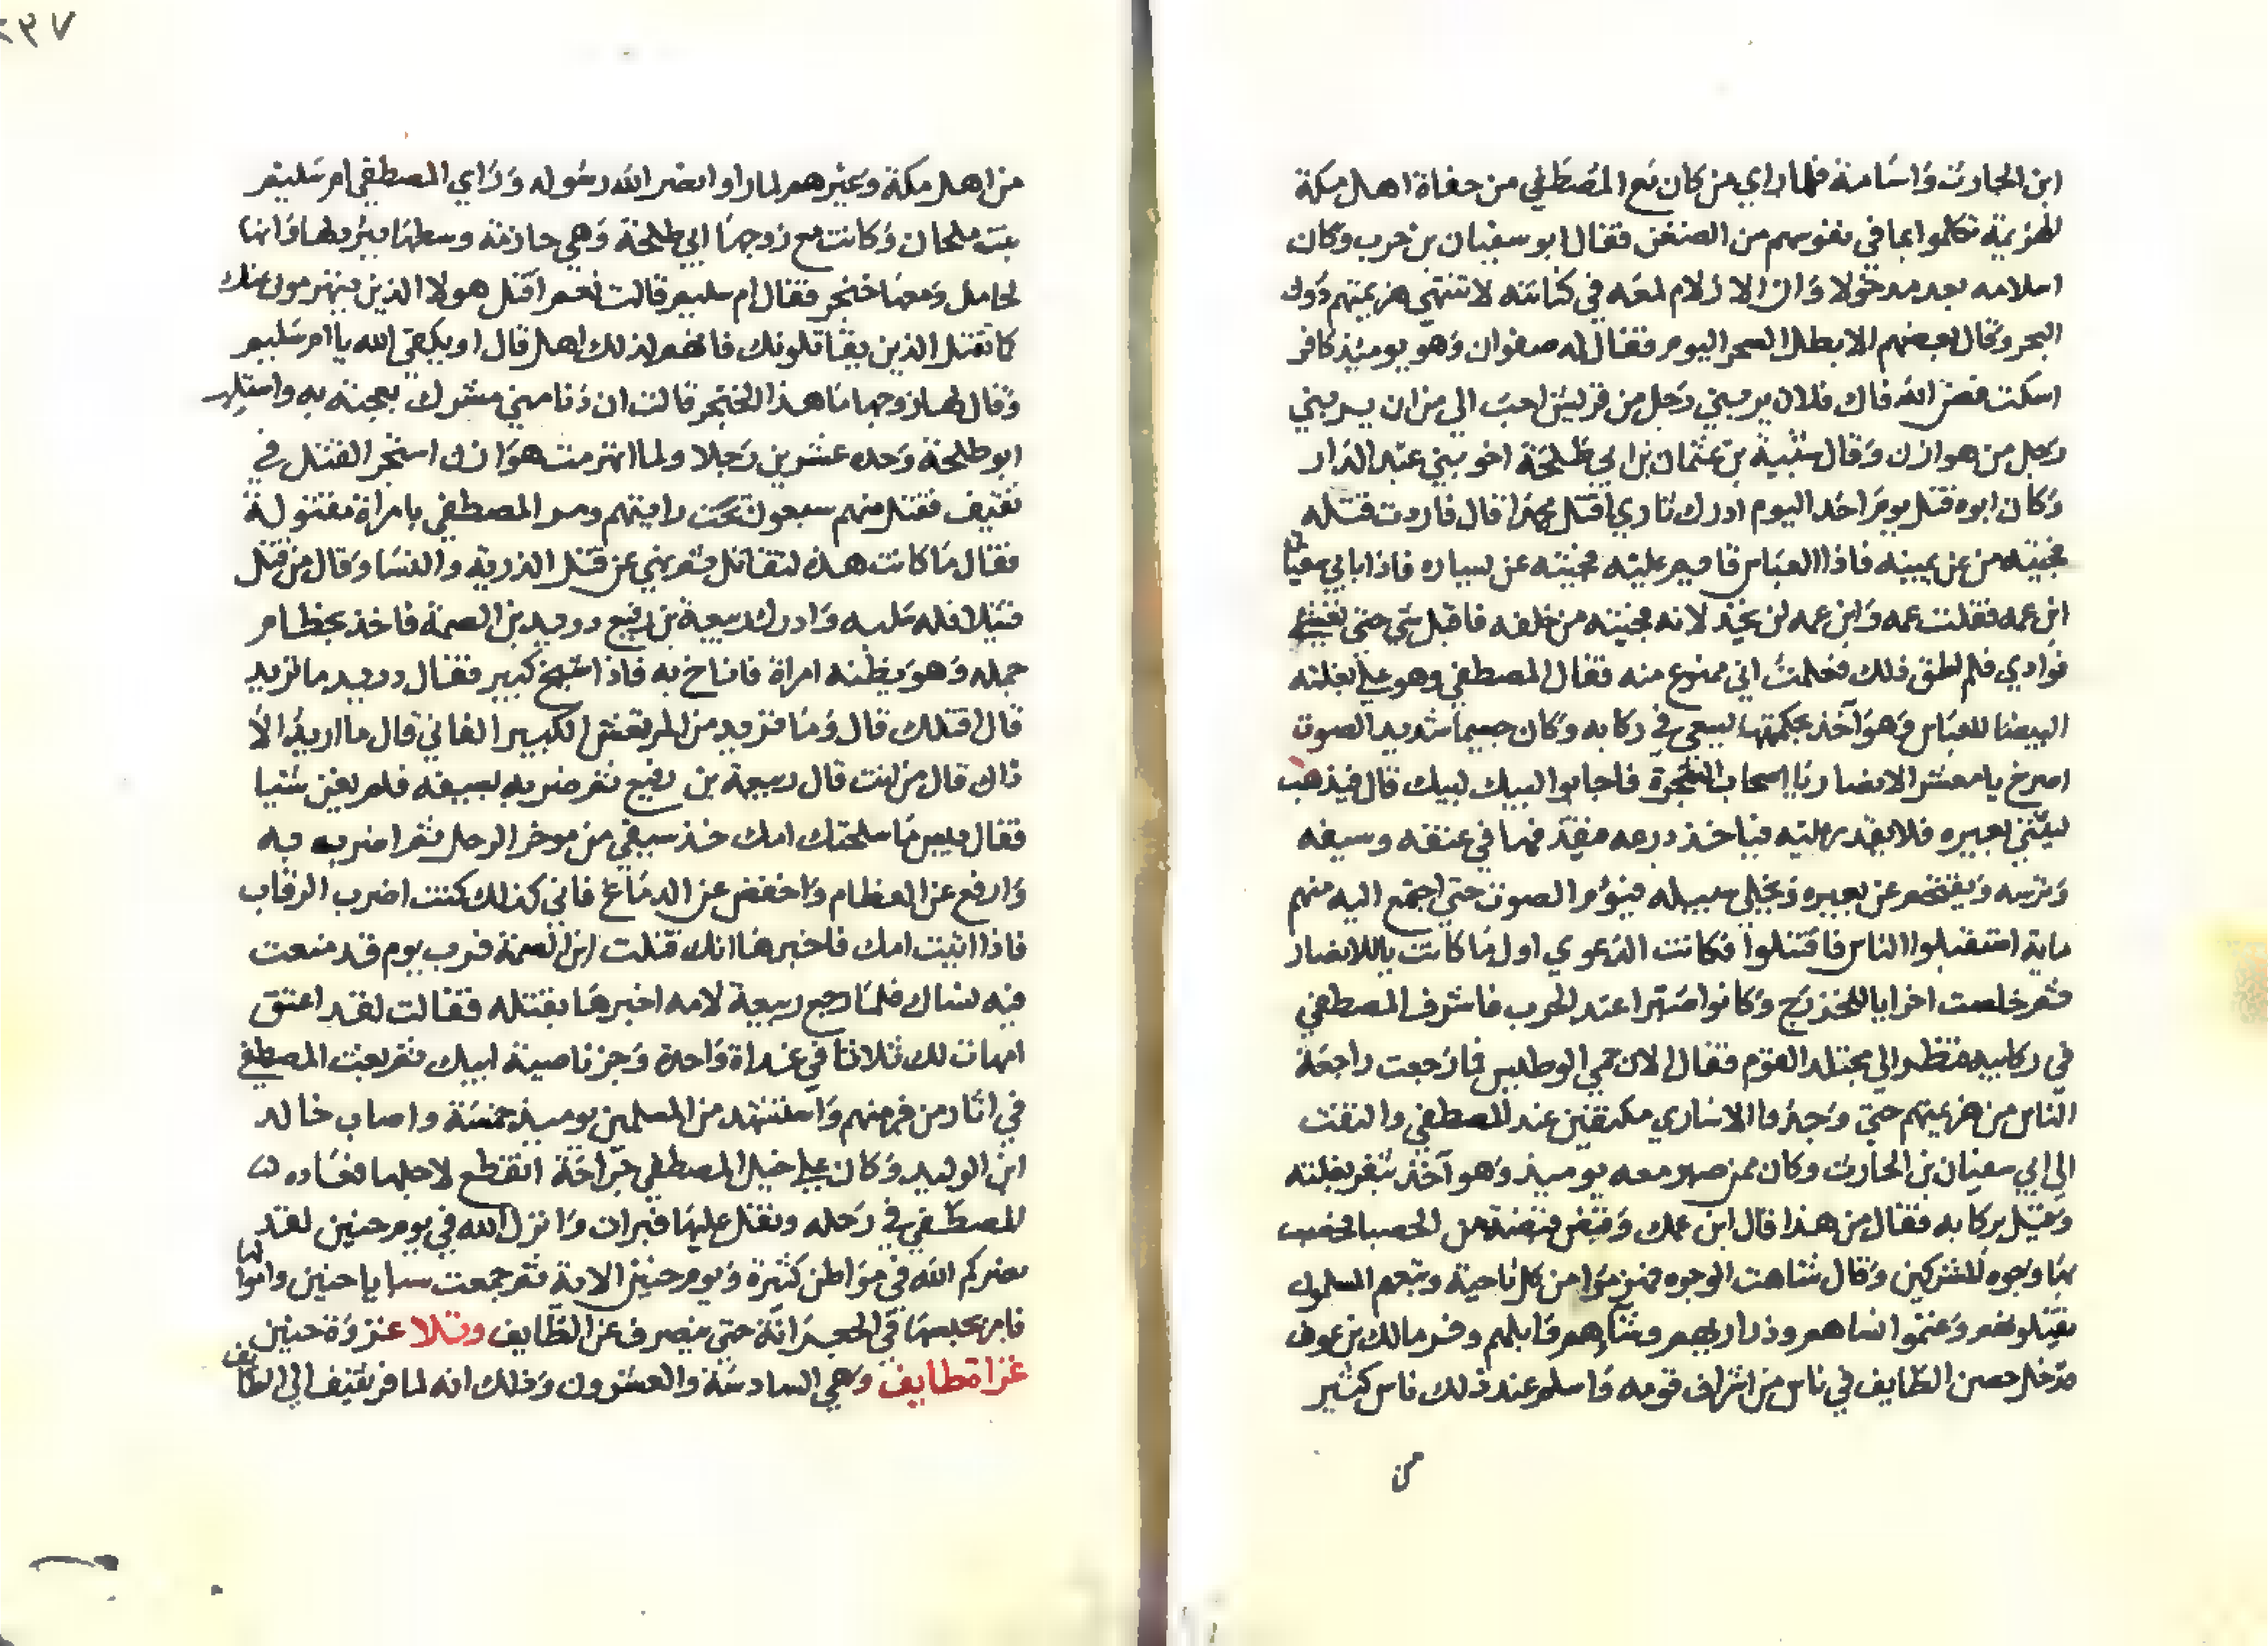 ابن الحارث وَاسَامة فلما راي من كان مَع المُصَطفي من جفاة اهل مكة
الهزيمة تكلموا بما في نفوسهم من الضغن فقال ابو سفيان بن حرب وكان
اسلامه بعد مدخولا وَان الازلام لمعَه في كنانته لا تنتهي هزيمتهم دُون
البحر وَقال بعضهم الا بطل السحر اليوم فقال له صفوان وَهو يوميذ كافر
اسكت فض الله فاك فلان يربيني رَجل من قريش احبّ الي من ان يربيني
رجل من هوازن وَقال شيبة بن عثمان بن ابي طلحَة اخو بني عبد الدار
وَكان ابوه قتل يومَ احد اليوم ادرك ثاري اقتل محمدا قال فاردت قتله
فجيته من عن يمينه فاذا العبَاس قايم عليه فجيته عن يساره فاذا بابي سفيان
ابن عمه فقلت عمه وَابن عمه لن يخذلانه فجيته من خلفه فاقبل شي حتى تغشي
فوادي فلم اطق ذلك فعلمتُ اني ممنوع منه فقال المصطفي وهو علي بغلته
البيضا للعبَاس وَهوَ آخذ بحكمتها يسعي في ركابه وَكان جسيماً شديد الصوت
اصرخ يا معشر الانصار يا اصحاب الشجرة فاجابوا لبيك لبيك قال فيذهب
ليثني بعيره فلا يقدر عليه فياخذ درعه فيقذفها في عنقه وسيفه
وَترسه وَيقتحم عن بعيره وَيخلي سبيله فيؤم الصوت حتي اجتمع اليه منهم
ماية استقبلوا الناس فاقتتلوا فكانت الدَعوي اول مَا كانت ياللانصار
ثم خلصت اخرا ياللخزرج وَكانوا صَبرا عند الحرب فاشرف المصطفي
في ركابيه فنظر الي مجتلد القوم فقال الان حمي الوطيس فما رَجعت راجعَة
الناس من هزيمتهم حتي وَجدوا الاسَاري مكتفين عند المصطفي والتفت
الي ابي سفيان بن الحارث وكان ممن صبر معه يوميذ وَهو آخذ بثفر بغلته
وَقيل بركابه فقال من هذا قال ابن عمك وَقبض قبضة من الحصبا فحصب
بهَا وَجوه المشركين وَقال شاهت الوجوه فهزموا من كل ناحية وتبعهم المسلمون
يقتلونهم وَغنموا نساهم وذراريهم وشَآهم وَابلهم وفر مالك بن عوف
فدخل حصن الطايف في ناس من اشراف قومه وَاسلم عند ذلك ناس كثير
من
٢٩٧
من اهل مكة وَغيرهم لما راوا نصر الله رسُوله وَرَاي المصطفي ام سَليم
بنت ملحان وَكانت مع زوجهَا ابي طلحَة وَهي حازمة وسطهَا ببُرد لها وَانها
لحامل وَمعهَا خنجر فقال ام سليم قالت نعم اقتل هولا الذين ينهزمون عنك
كما تقتل الذين يقاتلونك فانهم لذلك اهل قال او يكفي الله يا ام سَليم
وَقال لها زوجها مَا هذا الخنجر قالت ان دَنا مني مشرك بعجته به واستلب
ابو طلحَة وَحده عشرين رَجلا ولما انهزمت هوَازن استحر القتل في
ثقيف فقتل منهم سبعون تحت رايتهم ومر المصطفي بامرأة مقتولة
فقال مَا كانت هذه لتقاتل ثم نهي عن قتل الذرية والنسَا وَقال من قتل
قتيلا فله سَلبه وَادرك ربيعة بن رفيع دريد بن الصمة فاخذ بخطام
جمله وَهوَ يظنه امراة فاناخ به فاذا شيخ كبير فقال دريد ما تريد
قال اقتلك قال وَمَا تريد من المرتعش الكبير الفاني قال ما اريدُ الا
ذاك قال من انت قال ربيعة بن رفيع ثم ضربه بسيفه فلم يغن شيا
فقال بيس مَا سلحتك امك خذ سيفي من موخر الرحل ثم اضرب به
وَارفع عن العظام وَاخفض عن الدمَاغ فاني كذلك كنت اضرب الرقاب
فاذا اتيت امك فاخبرها انك قتلت ابن الصمة فرب يوم قد منعت
فيه نساك فلمَا رجع ربيعة لامه اخبرهَا بقتله فقالت لقد اعتق
امهات لك ثلاثا في غداة وَاحدة وَجز ناصية ابيك ثم بعث المصطفي
في اثار من فر منهم وَاستشهد من المسلمين يوميذ خمسَة واصاب خالد
ابن الوليد وَكان علي خيل المصطفي جرَاحَة انقطع لاجلها فعَاده
المصطفي في رَحله وتفل عليهَا فبران وَانزل الله في يوم حنين لقد
نصركم الله في مَواطن كثيرة وَيوم حنين الاية ثم جمعت سبايا حنين واموالها
فامر بحبسهَا في الجعرَانة حتى ينصرف عن الطايف وتلا غزوَة حنين
غزاة طايف وَهي السادسَة والعشرون وَذلك انه لما فر ثقيف الي الطايف